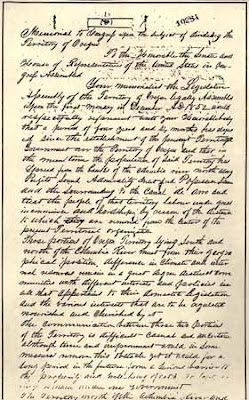 10284
Memorial to Congress upon the subject of dividing the
Territory of Oregon
To the Honorable the Senate and
House of Representatives of the United States in Con-
gress Assembled
Your memorialists the Legislative
Assembly of the Territory of Oregon legally assembled
upon the first Monday in December A D 1852 would
respectfully represent unto your Honorable body
that a period of four years and six months has elaps
ed since the establishment of the present Territorial
Government over the Territory of Oregon and that in
the mean time the population of said Territory has
Spread from the banks of the Columbia river North along
Puget Sound Admiralty
and the Surrounding to the Canal de Haro and
that the people of that Territory labour under great
inconvenience and hardships by reason of the distance
to which they are removed from the
present Territorial organization
Those portions of Oregon Territory lying South and
North of the Columbia River must from their geogra
phical position difference in climate and inter
nal resources remain in a great degree distinct com
munities with different interests and policies in
all that appertains to their domestic legislation
and the various interests that are to be regulated
nourished and cherished by it
The communication between these two portions
of the Territory is difficult Casual and uncertain
although time and improvement would in some
measure remove this obstacle yet it would for a
long period in the future form a serious barrier to
the prosperity and well being of
under one government
The Territory north of the Columbia river and